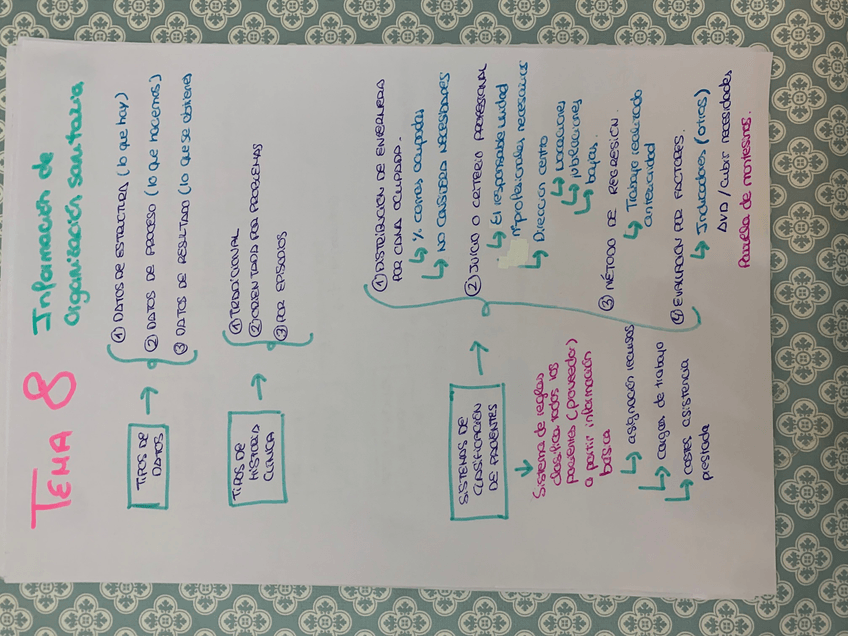 TEMA 8
Información de
Organización sanitaria
TIPOS DE
DATOS
① DATOS DE ESTRUCTURA (lo que hay)
② DATOS DE PROCESO (lo que hacemos)
③ DATOS DE RESULTADO (lo que se obtiene)
TIPOS DE
HISTORIA
CLINICA
① TRADICIONAL
② ORIENTADA POR PROBLEMAS
③ POR EPISODIOS
SISTEMAS DE
CLASIFICACIÓN
DE PACIENTES
Sistema de reglas
clasifica todos los
pacientes (proveedor)
a partir información
básica
asignación recursos
cargas de trabajo
costes asistencia
prestada
① DISTRIBUCIÓN DE ENFERMERA
POR CAMA OCUPADA.
% camas ocupadas
NO CONSIDERA NECESIDADES
② JUICIO O CRITERIO PROFESIONAL
El responsable unidad
nºprofesionales necesarios
Dirección centro
vacaciones
jubilaciones
bajas.
③ MÉTODO DE REGRESIÓN.
Trabajo realizado
anterioridad
④ EVALUACIÓN POR FACTORES.
Indicadores (otros)
AVD / cubrir necesidades
Parcella de montesinos.